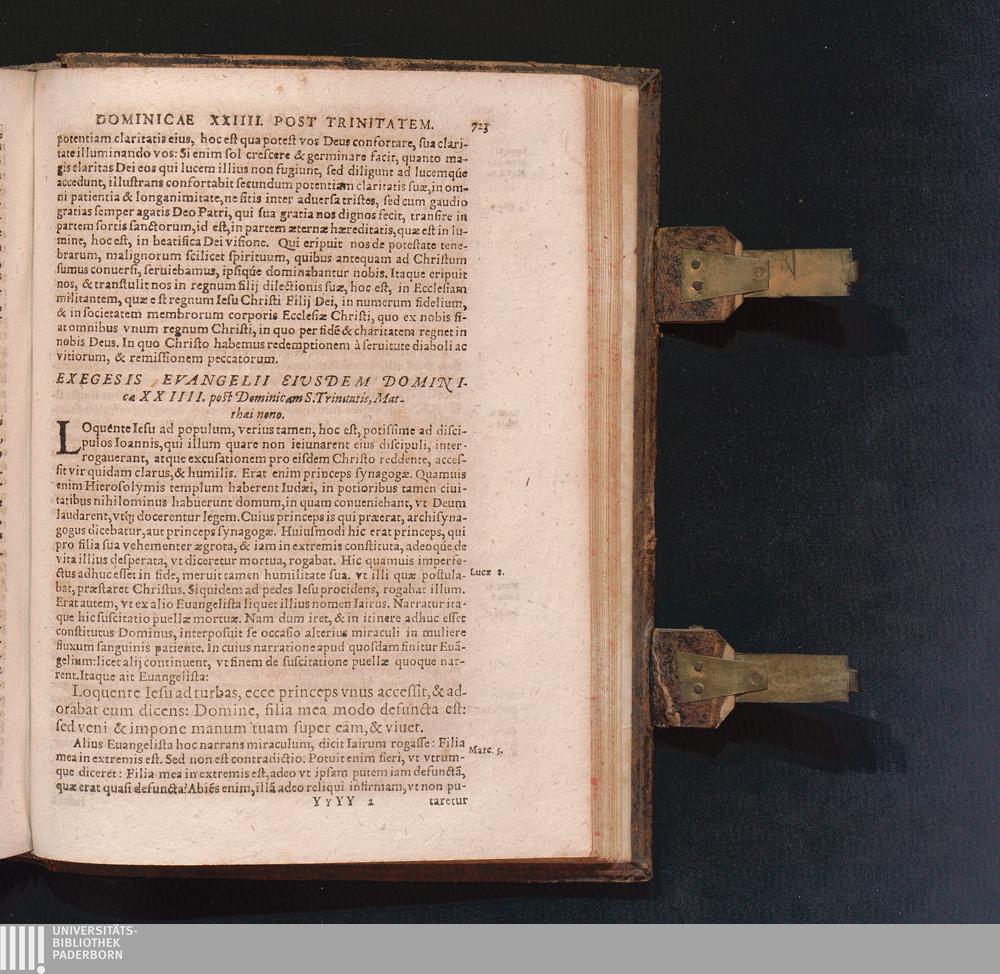 DOMINICAE XXIIII. POST TRINITATEM. 723
potentiam claritatis eius, hoc est qua potest vos Deus confortare, sua clari-
tate illuminando vos: Si enim sol crescere & germinare facit, quanto ma-
gis claritas Dei eos qui lucem illius non fugiunt, sed diligunt ad lucemq́ue
accedunt, illustrans confortabit secundum potentiam claritatis suæ, in om-
ni patientia & longanimitate, ne sitis inter aduersa tristes, sed cum gaudio
gratias semper agatis Deo Patri, qui sua gratia nos dignos fecit, transire in
partem sortis sanctorum, id est, in partem æternæ hæreditatis, quæ est in lu-
mine, hoc est, in beatifica Dei visione. Qui eripuit nos de potestate tene-
brarum, malignorum scilicet spirituum, quibus antequam ad Christum
sumus conuersi, seruiebamus, ipsiq́ue dominabantur nobis. Itaque eripuit
nos, & transtulit nos in regnum filij dilectionis suæ, hoc est, in Ecclesiam
militantem, quæ est regnum Iesu Christi Filij Dei, in numerum fidelium,
& in societatem membrorum corporis Ecclesiæ Christi, quo ex nobis fi-
at omnibus vnum regnum Christi, in quo per fidē & charitatem regnet in
nobis Deus. In quo Christo habemus redemptionem à seruitute diaboli ac
vitiorum, & remissionem peccatorum.
EXEGESIS EVANGELII EIVSDEM DOMINI-
cæ XXIIII. post Dominicam S. Trinitatis, Mat-
thæi nono.
LOquente Iesu ad populum, verius tamen, hoc est, potissime ad disci-
pulos Ioannis, qui illum quare non ieiunarent eius discipuli, inter-
rogauerant, atque excusationem pro eisdem Christo reddente, acces-
sit vir quidam clarus, & humilis. Erat enim princeps synagogæ. Quamuis
enim Hierosolymis templum haberent Iudæi, in potioribus tamen ciui-
tatibus nihilominus habuerunt domum, in quam conueniebant, vt Deum
laudarent, vtq́; docerentur legem. Cuius princeps is qui præerat, archisyna-
gogus dicebatur, aut princeps synagogæ. Huiusmodi hic erat princeps, qui
pro filia sua vehementer ægrota, & iam in extremis constituta, adeoq́ue de
vita illius desperata, vt diceretur mortua, rogabat. Hic quamuis imperfe-
ctus adhuc esset in fide, meruit tamen humilitate sua. vt illi quæ postula-
Lucæ 8.
bat, præstaret Christus. Siquidem ad pedes Iesu procidens, rogabat illum.
Erat autem, vt ex alio Euangelista liquet illius nomen Iairus. Narratur ita-
que hic suscitatio puellæ mortuæ. Nam dum iret, & in itinere adhuc esset
constitutus Dominus, interposuit se occasio alterius miraculi in muliere
fluxum sanguinis patiente. In cuius narratione apud quosdam finitur Euā-
gelium: licet alij continuent, vt finem de suscitatione puellæ quoque nar-
rent. Itaque ait Euangelista:
Loquente Iesu ad turbas, ecce princeps vnus accessit, & ad-
orabat eum dicens: Domine, filia mea modo defuncta est:
sed veni & impone manum tuam super eam, & viuet.
Alius Euangelista hoc narrans miraculum, dicit Iairum rogasse: Filia
Marc. 5.
mea in extremis est. Sed non est contradictio. Potuit enim fieri, vt vtrum-
que diceret: Filia mea in extremis est, adeo vt ipsam putem iam defunctā,
quæ erat quasi defuncta? Abiēs enim, illā adeo reliqui infirmam, vt non pu-
YyYY 2 taretur
UNIVERSITÄTS-
BIBLIOTHEK
PADERBORN